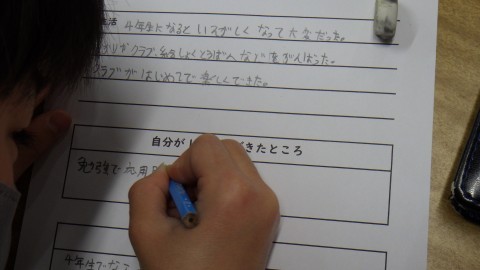 活 4年生になると いそがしくなって大変だった。
クラブ 給しょくとうばん などをがんばった。
クラブがはじめてで楽しくできた。
自分が きたところ
勉強で応用
4年生でな